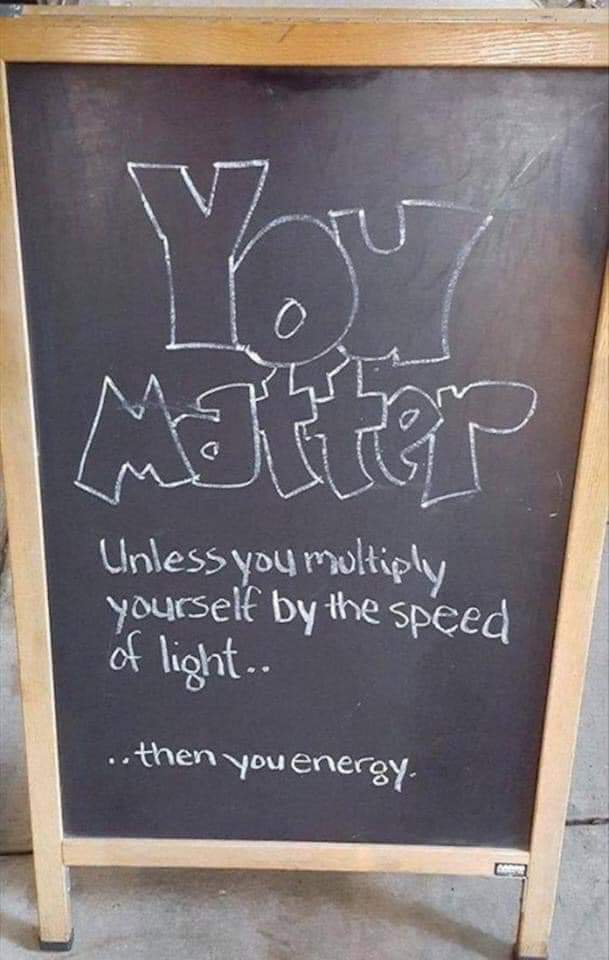 You
Matter
Unless you multiply
yourself by the speed
of light..
..then you energy.